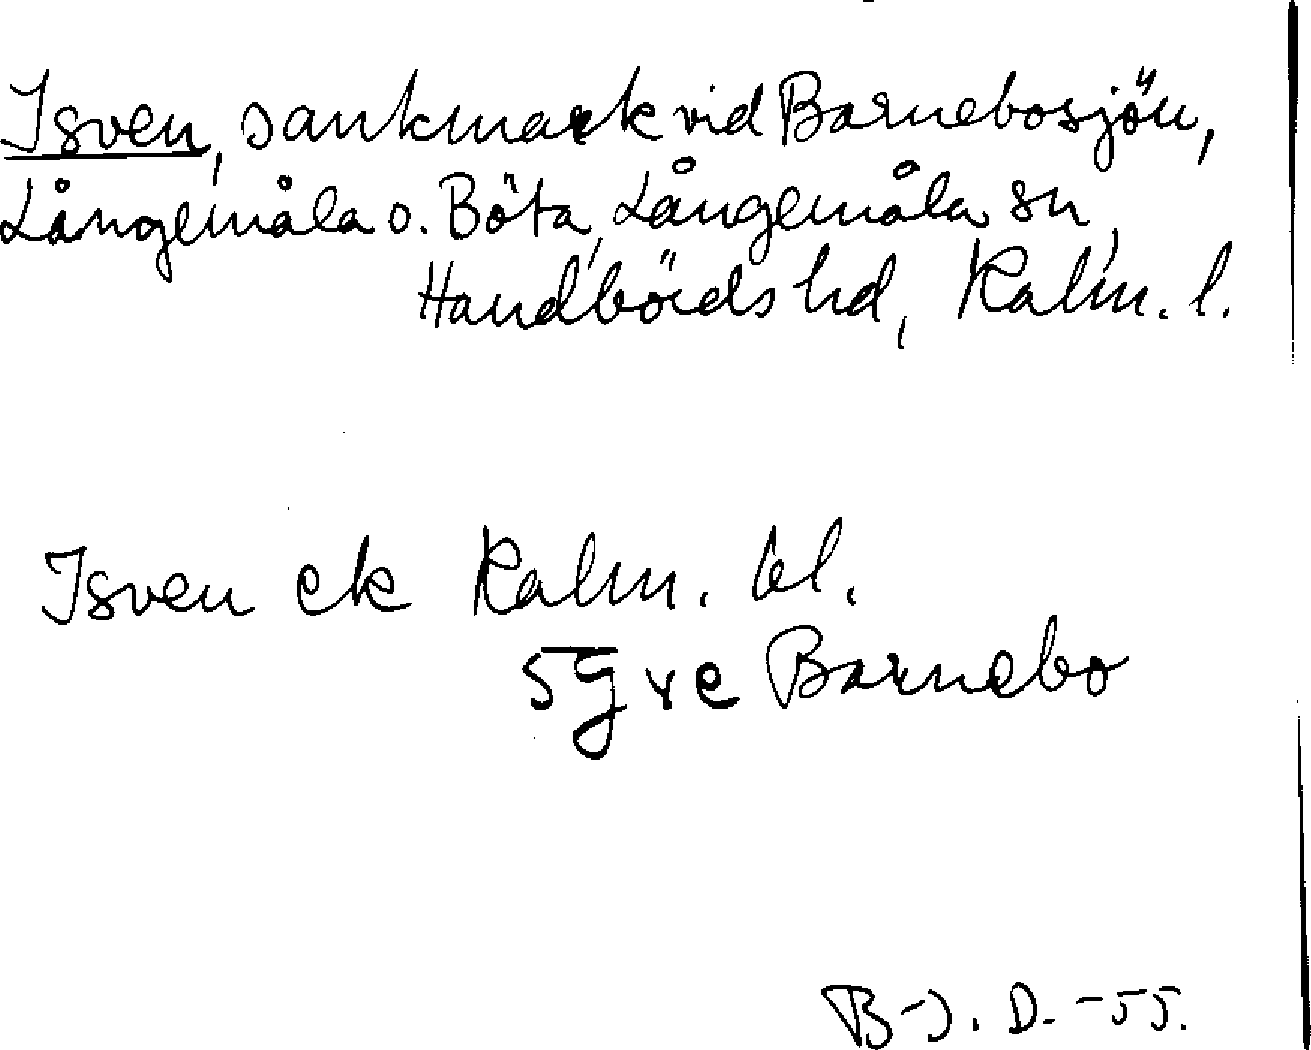 Isven, sankmark vid Barnebosjön,
Långemåla o. Böta, Långemåla sn,
Handbörds hd, Kalm. l.
Isven ek Kalm. bl.
5g ve Barnebo
B-J. D. -55.